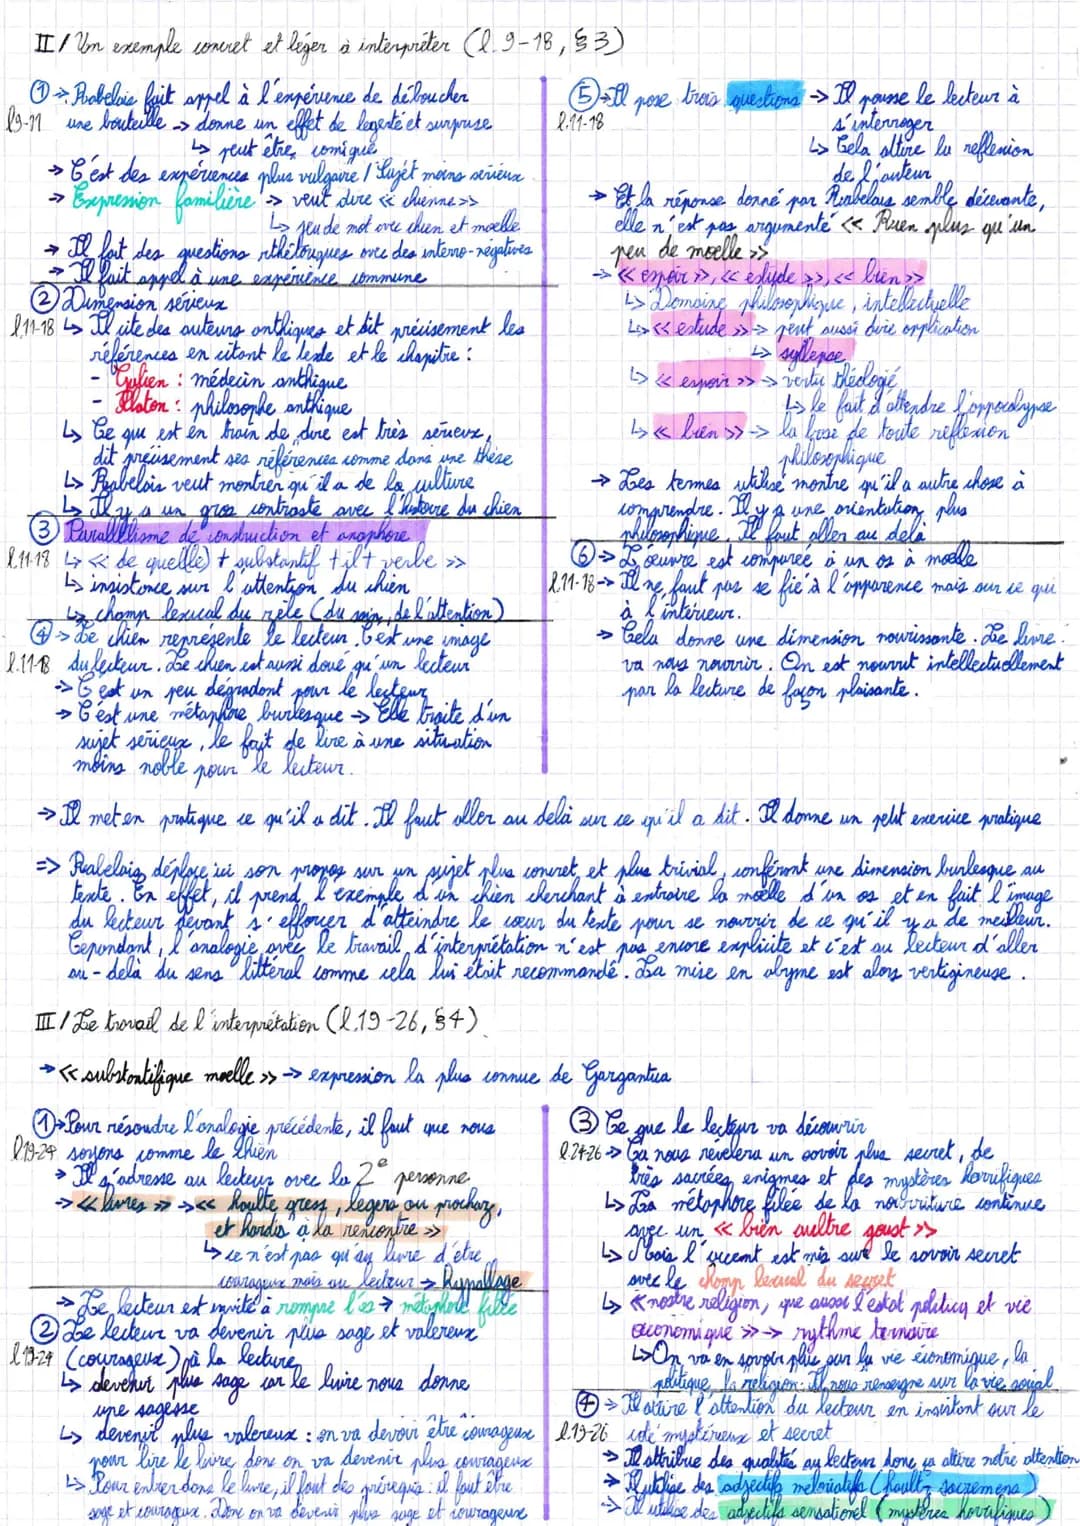 II / Un exemple concret et léger à interpréter (l.9-18, §3)
① → Rabelais fait appel à l'expérience de déboucher
l9-11 une bouteille → donne un effet de legerté et surprise
↳ peut être comique
→ C'est des expériences plus vulgaire / Sujet moins sérieux
→ Expression familière → veut dire << chienne >>
↳ jeu de mot avec chien et moelle
→ Il fait des questions rthétoriques avec des interro-négatives
→ Il fait appel à une expérience commune
② Dimension sérieux
l.11-18 ↳ Il cite des auteurs anthiques et dit précisement les
références en citant le texte et le chapitre :
- Galien : médecin anthique
- Platon : philosophe anthique
↳ Ce qui est en train de dire est très sérieux,
dit précisement ses références comme dans une thèse
↳ Rabelais veut montrer qu'il a de la culture
↳ Il y a un gros contraste avec l'histoire du chien
③ Parallélisme de construction et anaphore
l.11-18 ↳ << de quelle) + substantif + il + verbe >>
↳ insistance sur l'attention du chien
↳ champ lexical du zèle (du soin, de l'attention)
④ → Le chien représente le lecteur. C'est une image
l.11-18 du lecteur. Le chien est aussi doué qu'un lecteur
→ C'est un peu dégradant pour le lecteur
→ C'est une métaphore burlesque → Elle traite d'un
sujet sérieux, le fait de lire à une situation
moins noble pour le lecteur.
⑤ → Il pose trois questions → Il pousse le lecteur à
l.11-18 s'interroger
↳ Cela attire la reflexion
de l'auteur
→ Et la réponse donné par Rabelais semble décevante,
elle n'est pas argumenté << Rien plus qu'un
peu de moelle >>
→ << espoir >>, << estude >>, << bien >>
↳ Domaine philosophique, intellectuelle
↳ << estude >> → peut aussi dire application
↳ syllepse
↳ << espoir >> → vertu théologie
↳ le fait d'attendre l'appocalypse
↳ << bien >> → la base de toute reflexion
philosophique
→ Les termes utilisé montre qu'il a autre chose à
comprendre. Il y a une orientation plus
philosophique. Il faut aller au delà
⑥ → L'œuvre est comparée à un os à moelle
l.11-18 → Il ne faut pas se fié à l'apparence mais sur ce qui
à l'intérieur.
→ Cela donne une dimension nourissante. Le livre
va nous nourrir. On est nourrit intellectuellement
par la lecture de façon plaisante.
→ Il met en pratique ce qu'il a dit. Il faut aller au delà sur ce qu'il a dit. Il donne un petit exercice pratique
=> Rabelais déplace ici son propos sur un sujet plus concret et plus trivial, conférant une dimension burlesque au
texte. En effet, il prend l'exemple d'un chien cherchant à extraire la moelle d'un os et en fait l'image
du lecteur devant s'efforcer d'atteindre le cœur du texte pour se nourrir de ce qu'il y a de meilleur.
Cependant, l'analogie avec le travail d'interprétation n'est pas encore explicite et c'est au lecteur d'aller
au-delà du sens littéral comme cela lui était recommandé. La mise en abyme est alors vertigineuse.
III / Le travail de l'interprétation (l.19-26, §4)
→ << substantifique moelle >> → expression la plus connue de Gargantua
① → Pour résoudre l'analogie précédente, il faut que nous
l.19-24 soyons comme le chien
→ Il s'adresse au lecteur avec la 2e personne
→ << livres >> → << haulte gresse, legers au prochaz,
et hardis à la rencontre >>
↳ ce n'est pas qu'au livre d'être
courageux mais au lecteur → Hypallage
→ Le lecteur est invité à rompre l'os → métaphore filée
② Le lecteur va devenir plus sage et valereux
l.19-24 (courageux) à la lecture
↳ devenir plus sage car le livre nous donne
une sagesse
↳ devenir plus valereux : on va devoir être courageux
pour lire le livre, donc on va devenir plus courageux
↳ Pour entrer dans le livre, il faut des prérequis : il faut être
sage et courageux. Donc on va devenir plus sage et courageux
③ Ce que le lecteur va découvrir
l.24-26 → Ça nous revelera un savoir plus secret, de
très sacrées enigmes et des mystères horrifiques
↳ La métaphore filée de la nourriture continue
avec un << bien aultre goust >>
↳ Mais l'accent est mis sur le savoir secret
avec le champ lexical du secret
↳ << nostre religion, que aussi l'estat politicq et vie
œconomique >> → rythme ternaire
↳ On va en savoir plus sur la vie économique, la
politique, la religion. Il nous renseigne sur la vie social
④ → Il attire l'attention du lecteur en insistant sur le
l.19-26 coté mystérieux et secret
→ Il attribue des qualités au lecteur donc ça attire notre attention
→ Il utilise des adjectifs mélioratifs (haultz sacremens)
→ Il utilise des adjectifs sensationel (mystères horrifiques)